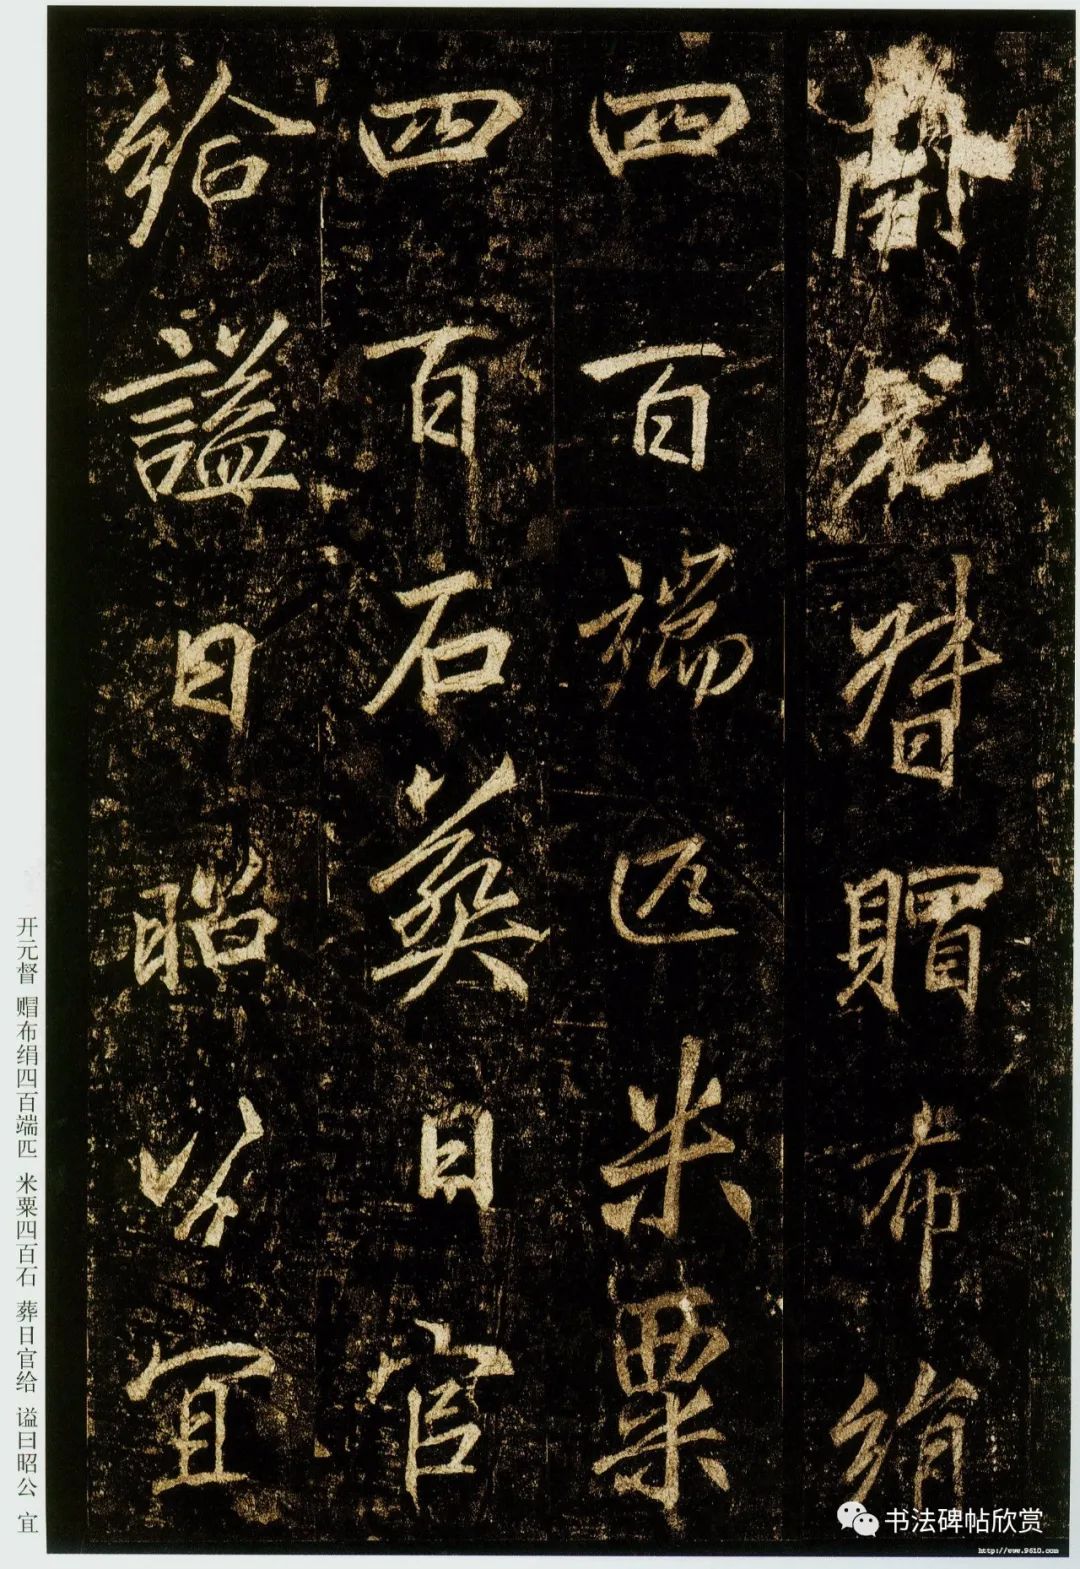 開元督賵布絹
四百端匹米粟
四百石葬日官
給謚曰昭公宜
开元督 赗布绢四百端匹 米粟四百石 葬日官给 谥曰昭公 宜
书法碑帖欣赏
http://www.9610.com